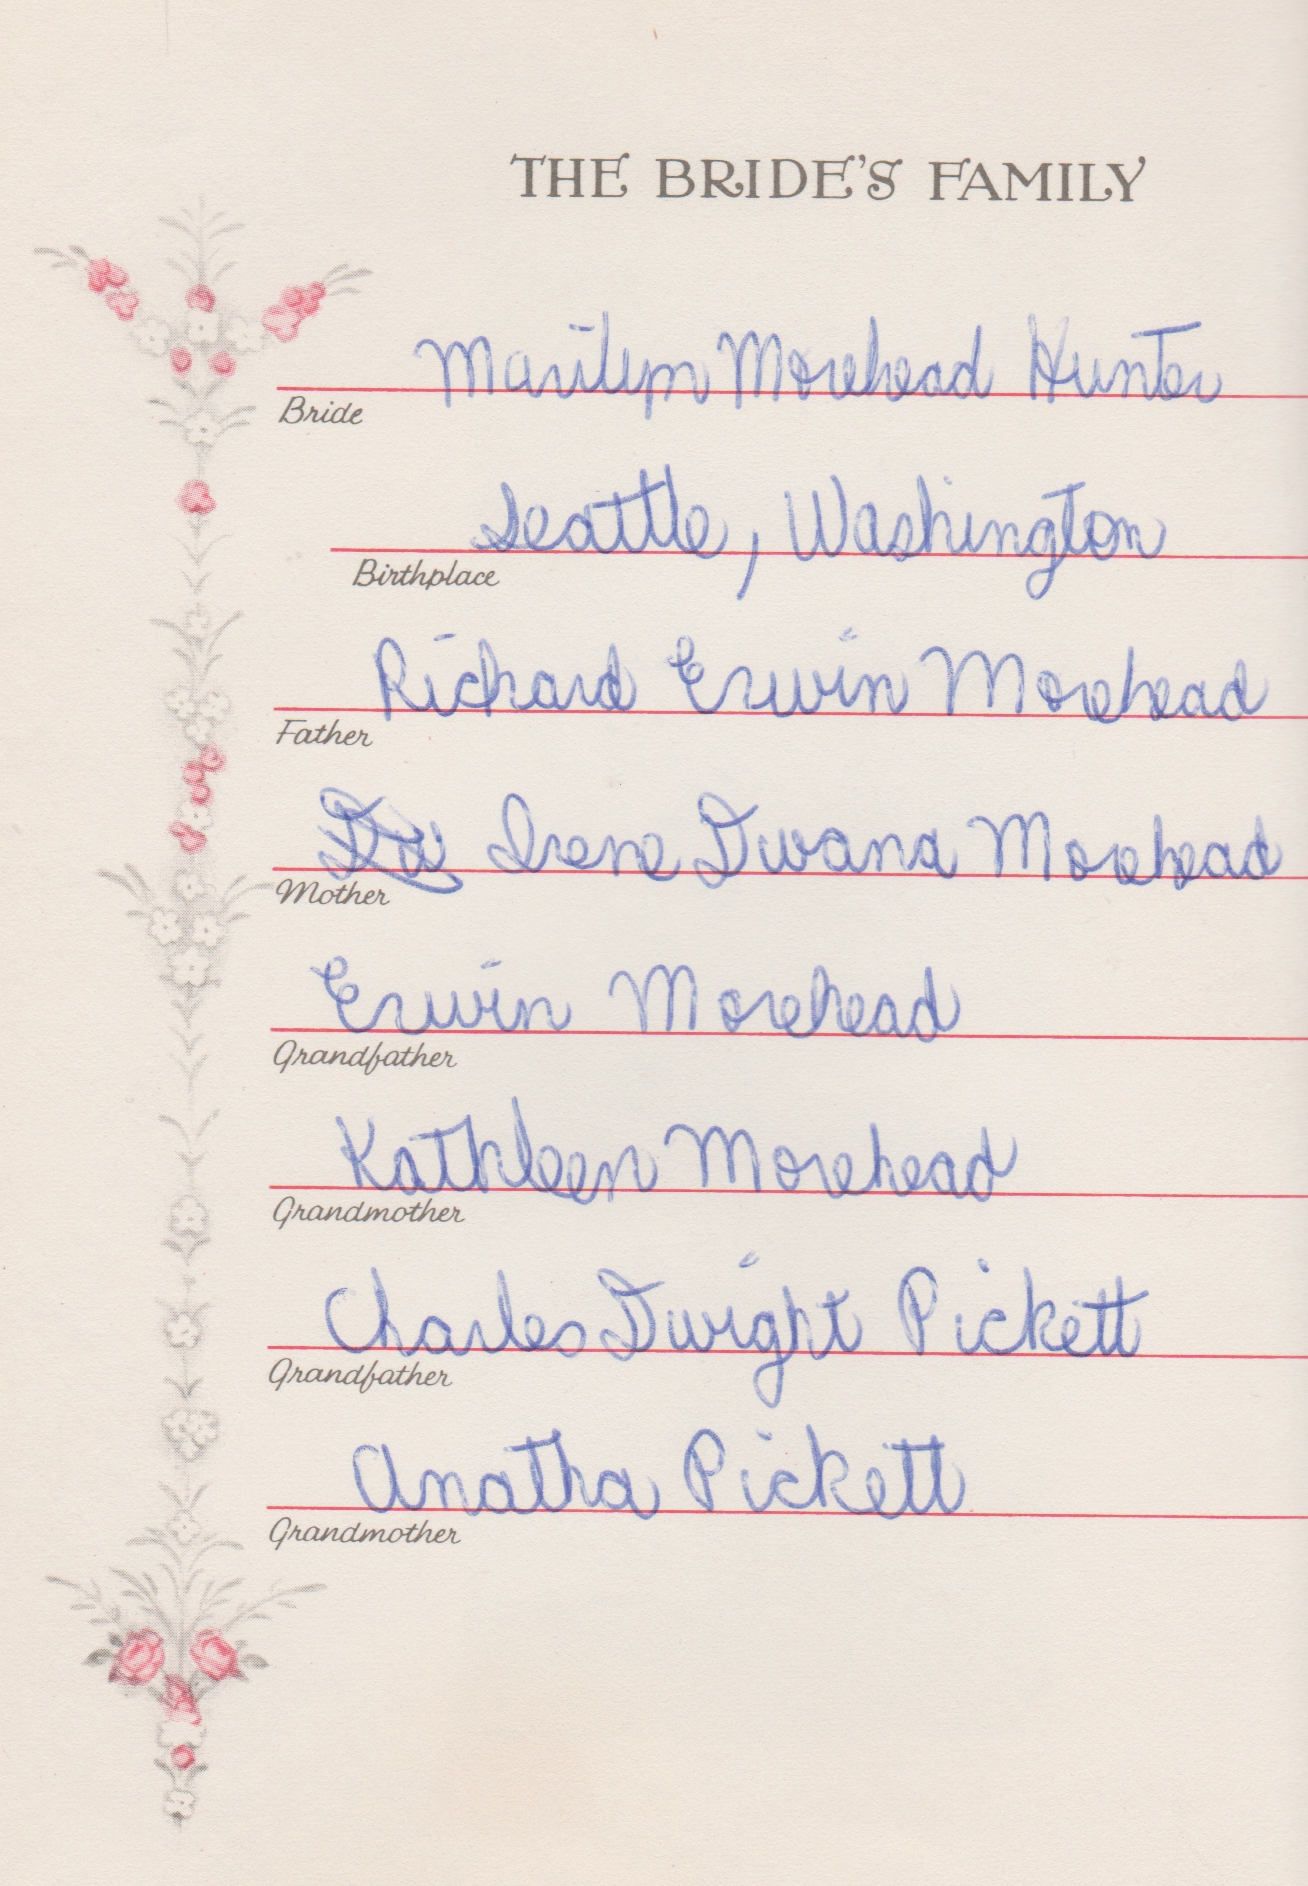 THE BRIDE'S FAMILY
Marilyn Morehead Hunter
Bride
Seattle, Washington
Birthplace
Richard Erwin Morehead
Father
Irene Dwana Morehead
Mother
Erwin Morehead
Grandfather
Kathleen Morehead
Grandmother
Charles Dwight Pickett
Grandfather
Anatha Pickett
Grandmother